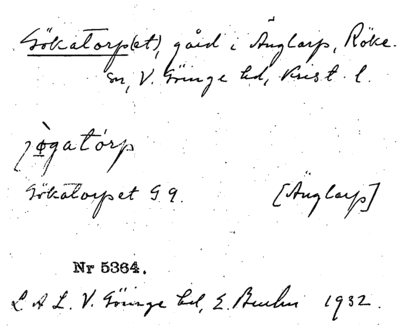 Gökatorp(et), gård i Änglarp, Röke
sn, V. Göinge hd, Krist. l.
jògatórp
Gökatorpet G 9. [Änglarp]
Nr 5364.
L A L. V. Göinge hd, E. 1932.